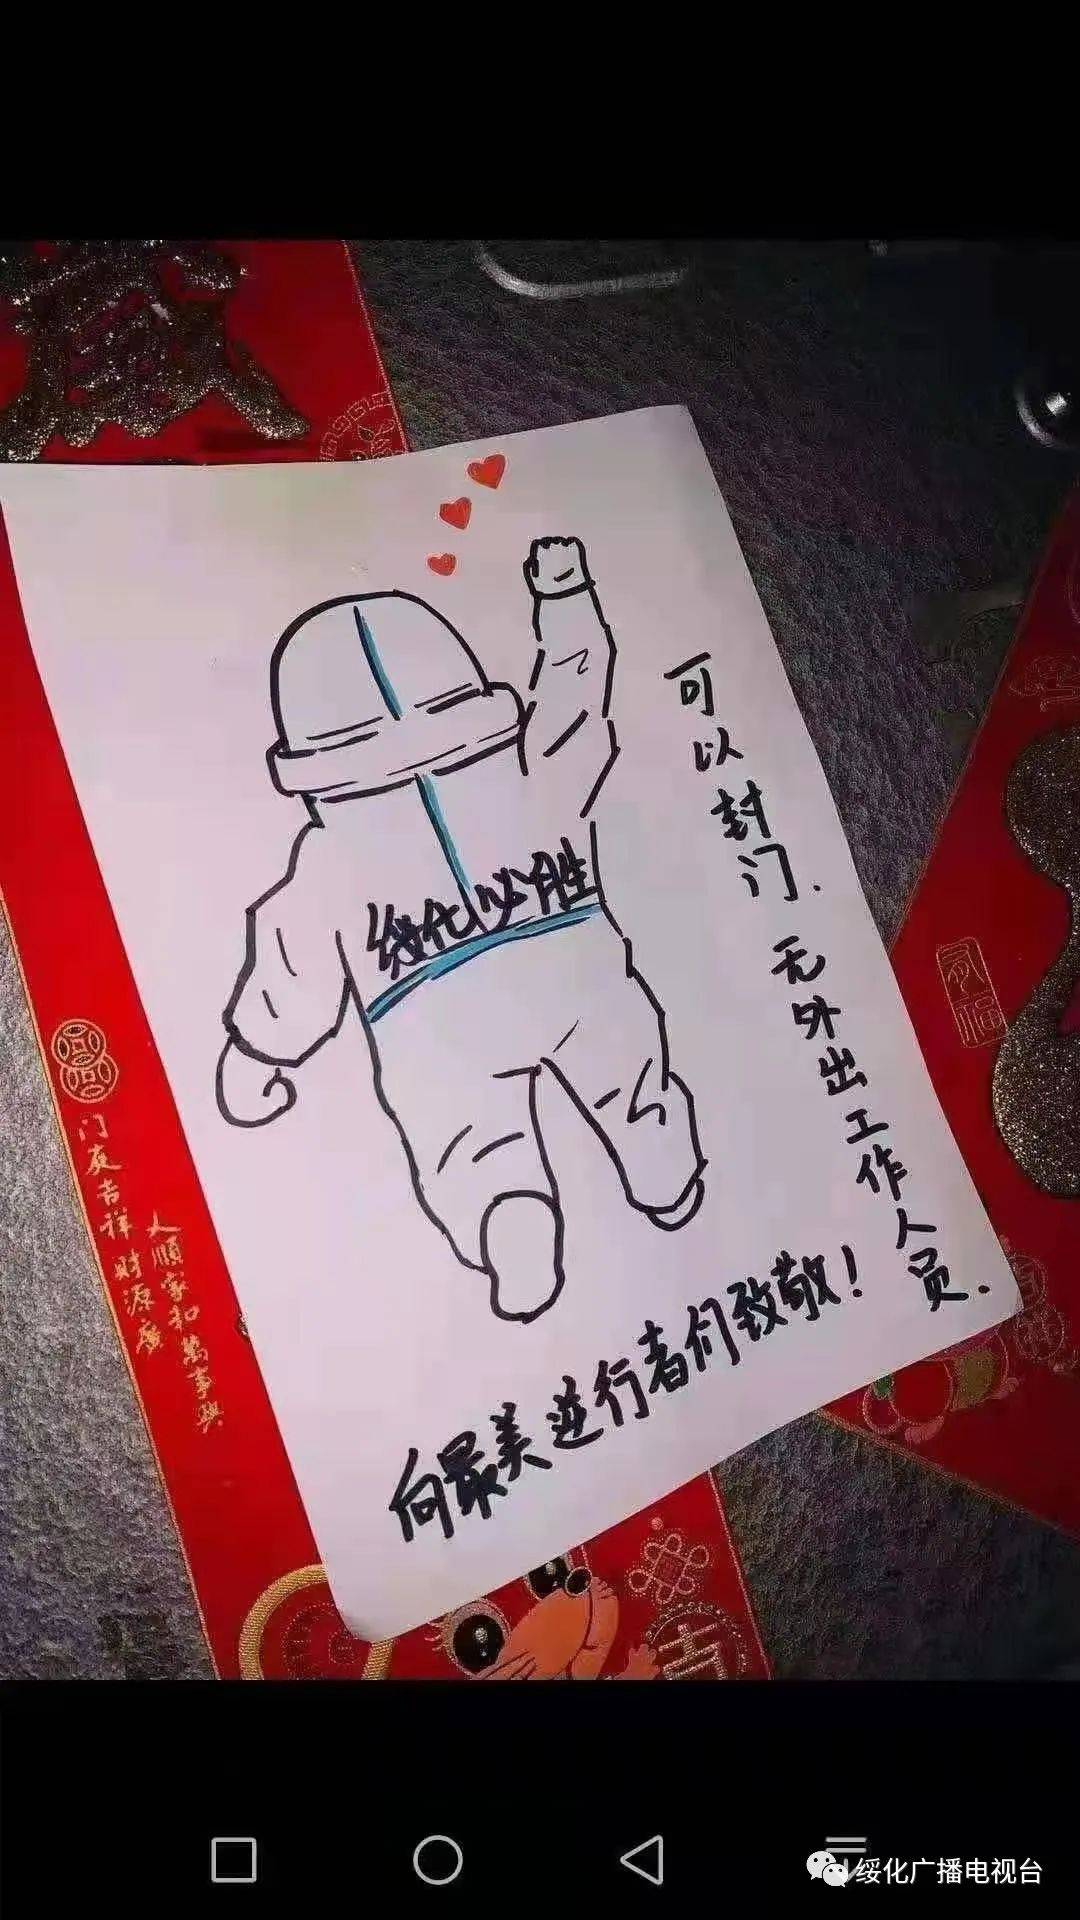 可以封门.无外出工作人员.
绥化必胜
向最美逆行者们致敬!
门庭吉祥财源广
人順家和萬事興
吉
绥化广播电视台